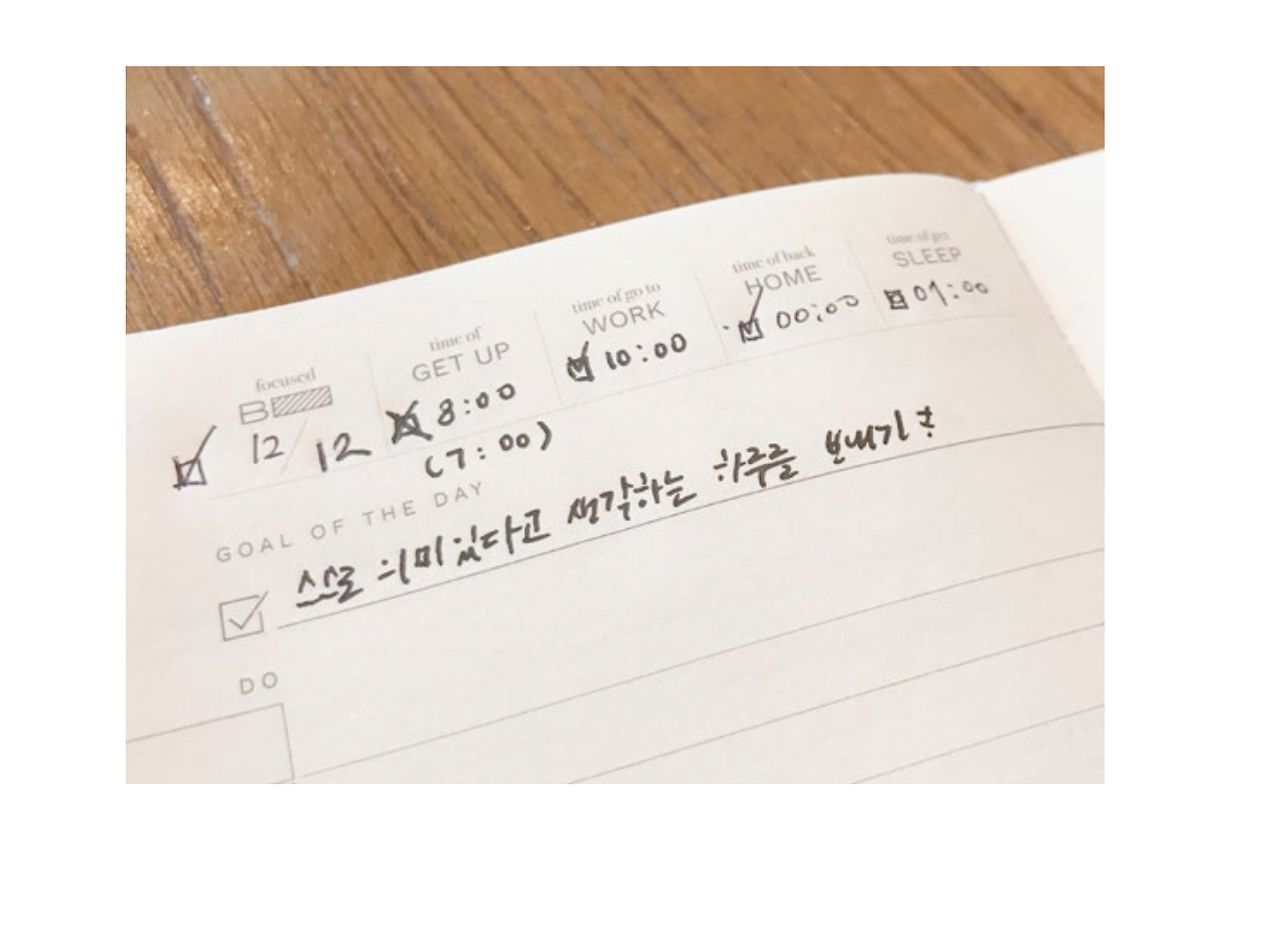 focused
time of
GET UP
time of go to
WORK
time of back
HOME
time of get
SLEEP
12/12
8:00
10:00
00:00
01:00
(7:00)
GOAL OF THE DAY
스스로 의미있다고 생각하는 하루를 보내기!
DO